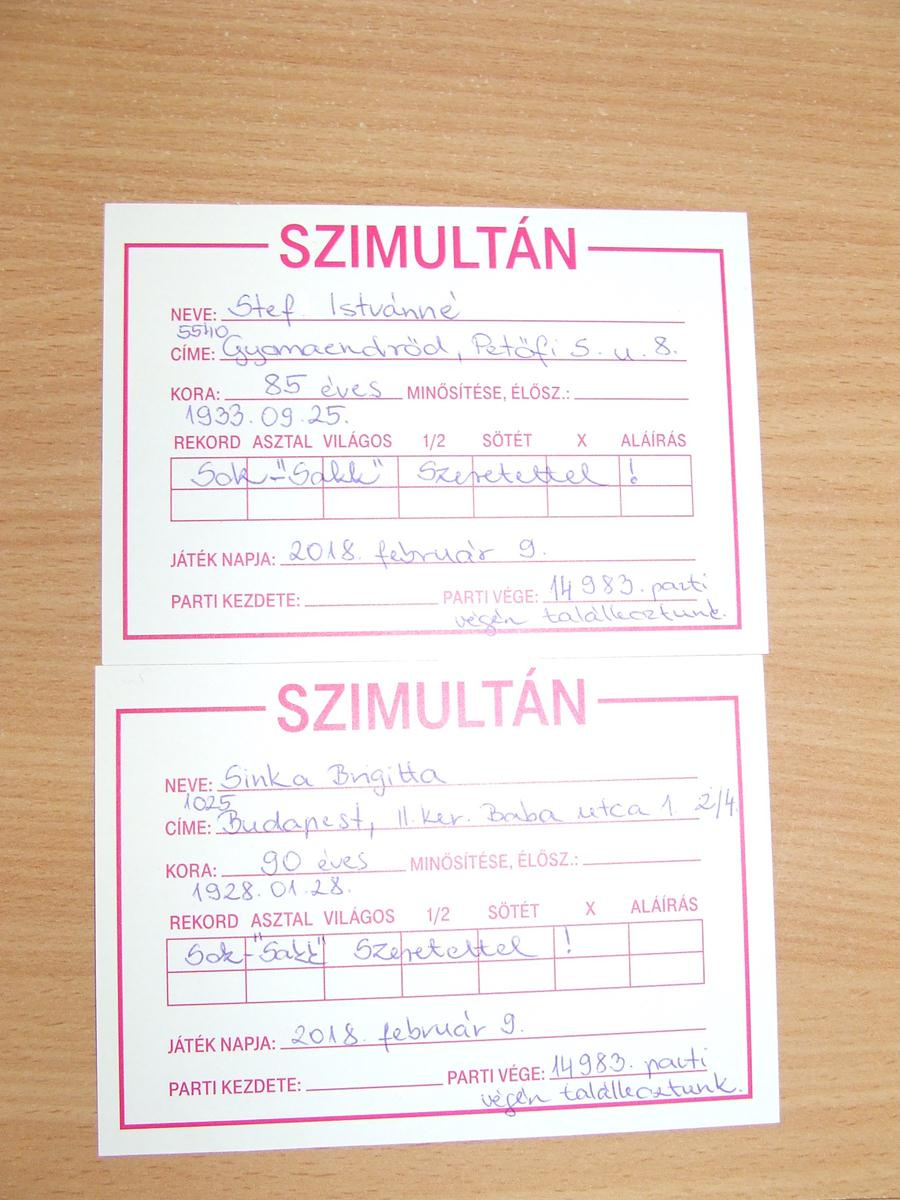 SZIMULTÁN
NEVE: Stef Istvánné
5540
CÍME: Gyomaendrőd, Petőfi S. u. 8.
KORA: 85 éves MINŐSÍTÉSE, ÉLŐSZ.:
1933.09.25.
REKORD ASZTAL VILÁGOS 1/2 SÖTÉT X ALÁÍRÁS
Sok-"Sakk" Szeretettel !
JÁTÉK NAPJA: 2018. február 9.
PARTI KEZDETE: PARTI VÉGE: 14983. parti
végén találkoztunk.
SZIMULTÁN
NEVE: Sinka Brigitta
1025
CÍME: Budapest, II. ker. Baba utca 1. 2/4.
KORA: 90 éves MINŐSÍTÉSE, ÉLŐSZ.:
1928.01.28.
REKORD ASZTAL VILÁGOS 1/2 SÖTÉT X ALÁÍRÁS
Sok-"Sakk" Szeretettel !
JÁTÉK NAPJA: 2018. február 9.
PARTI KEZDETE: PARTI VÉGE: 14983. parti
végén találkoztunk.